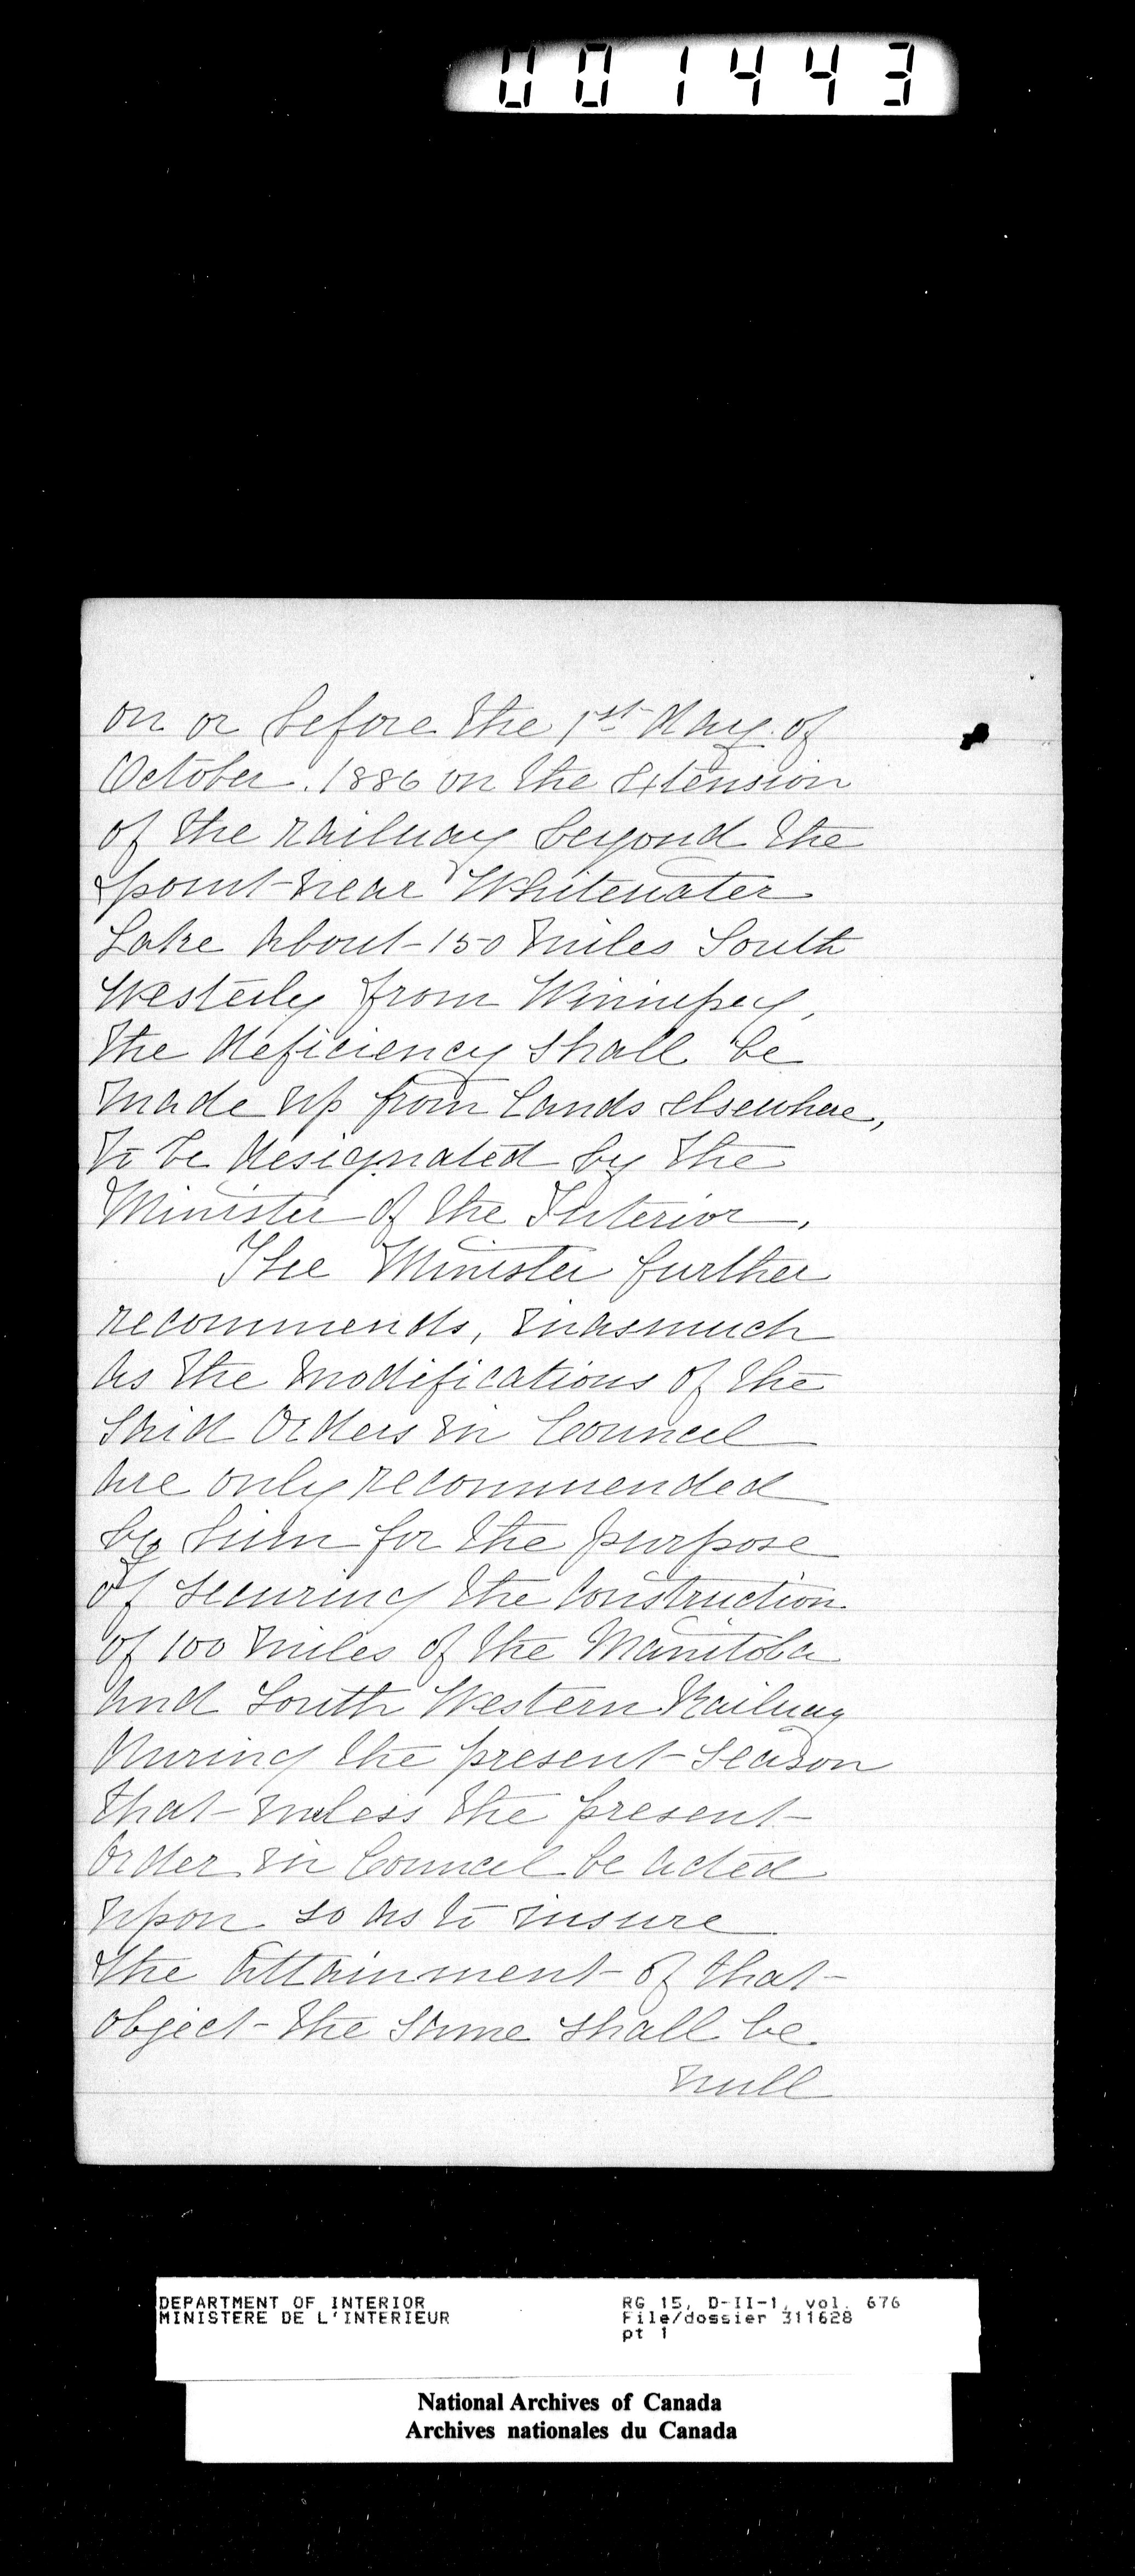 001443
on or before the 1st day of
October. 1886 on the extension
of the railway beyond the
point near Whitewater
Lake about 150 miles South
Westerly from Winnipeg,
the deficiency shall be
made up from lands elsewhere,
to be designated by the
Minister of the Interior.
The Minister further
recommends, inasmuch
as the modifications of the
said Orders in Council
are only recommended
by him for the purpose
of securing the construction
of 100 miles of the Manitoba
and South Western Railway
during the present season
that unless the present
Order in Council be acted
upon so as to insure
the attainment of that
object the same shall be
null
DEPARTMENT OF INTERIOR
MINISTERE DE L'INTERIEUR
RG 15, D-II-1, vol. 676
File/dossier 311628
pt 1
National Archives of Canada
Archives nationales du Canada